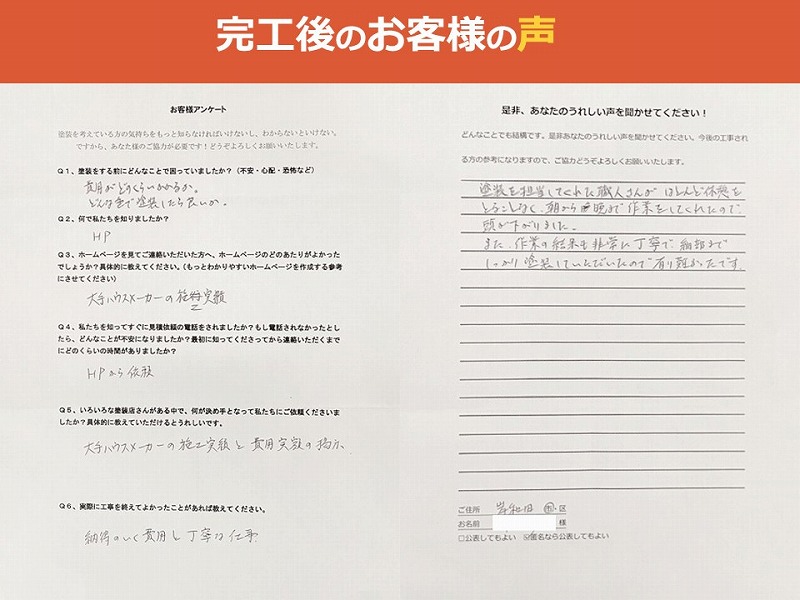 完工後のお客様の声
お客様アンケート
塗装を考えている方の気持ちをもっと知らなければいけないし、わからないといけない。
ですから、あなた様のご協力が必要です！どうぞよろしくお願いいたします。
Q1、塗装をする前にどんなことで困っていましたか？（不安・心配・恐怖など）
費用がどのくらいかかるか。
どんな色で塗装したら良いか。
Q2、何で私たちを知りましたか？
HP
Q3、ホームページを見てご連絡いただいた方へ、ホームページのどのあたりがよかった
でしょうか？具体的に教えてください。（もっとわかりやすいホームページを作成する参考
にさせてください）
大手ハウスメーカーの施工実績
Q4、私たちを知ってすぐに見積依頼の電話をされましたか？もし電話されなかったとし
たら、どんなことが不安になりましたか？最初に知ってくださってから連絡いただくまで
にどのくらいの時間がありましたか？
HPから依頼
Q5、いろいろな塗装店さんがある中で、何が決め手となって私たちにご依頼くださいま
したか？具体的に教えていただけるとうれしいです。
大手ハウスメーカーの施工実績と費用実額の掲示、
Q6、実際に工事を終えてよかったことがあれば教えてください。
納得のいく費用と丁寧な仕事
是非、あなたのうれしい声を聞かせてください！
どんなことでも結構です。是非あなたのうれしい声を聞かせてください。今後の工事され
る方の参考になりますので、ご協力どうぞよろしくお願いいたします。
塗装を担当してくれた職人さんが ほとんど休憩を
とることなく、朝から晩まで作業をしてくれたので
頭が下がりました。
また、作業の結果も非常に丁寧で 細部まで
しっかり塗装していただいたので有り難かったです。
ご住所 岸和田 市・区
お名前 様
□公表してもよい ☑匿名なら公表してもよい